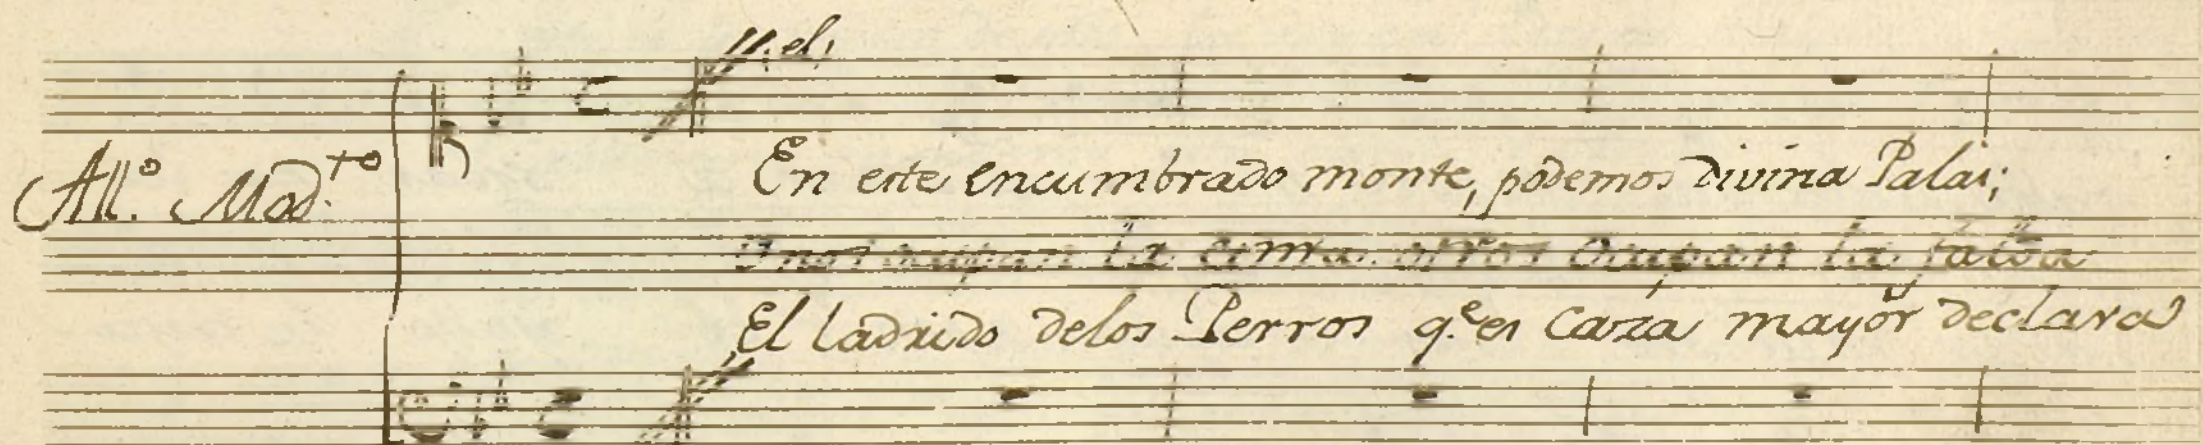 el
All.º Mod.to
En este encumbrado monte, podemos divina Palas;
Unos ocupan la cima otros ocupan la falda
El ladrido delos Perros q.e es Caza mayor declara